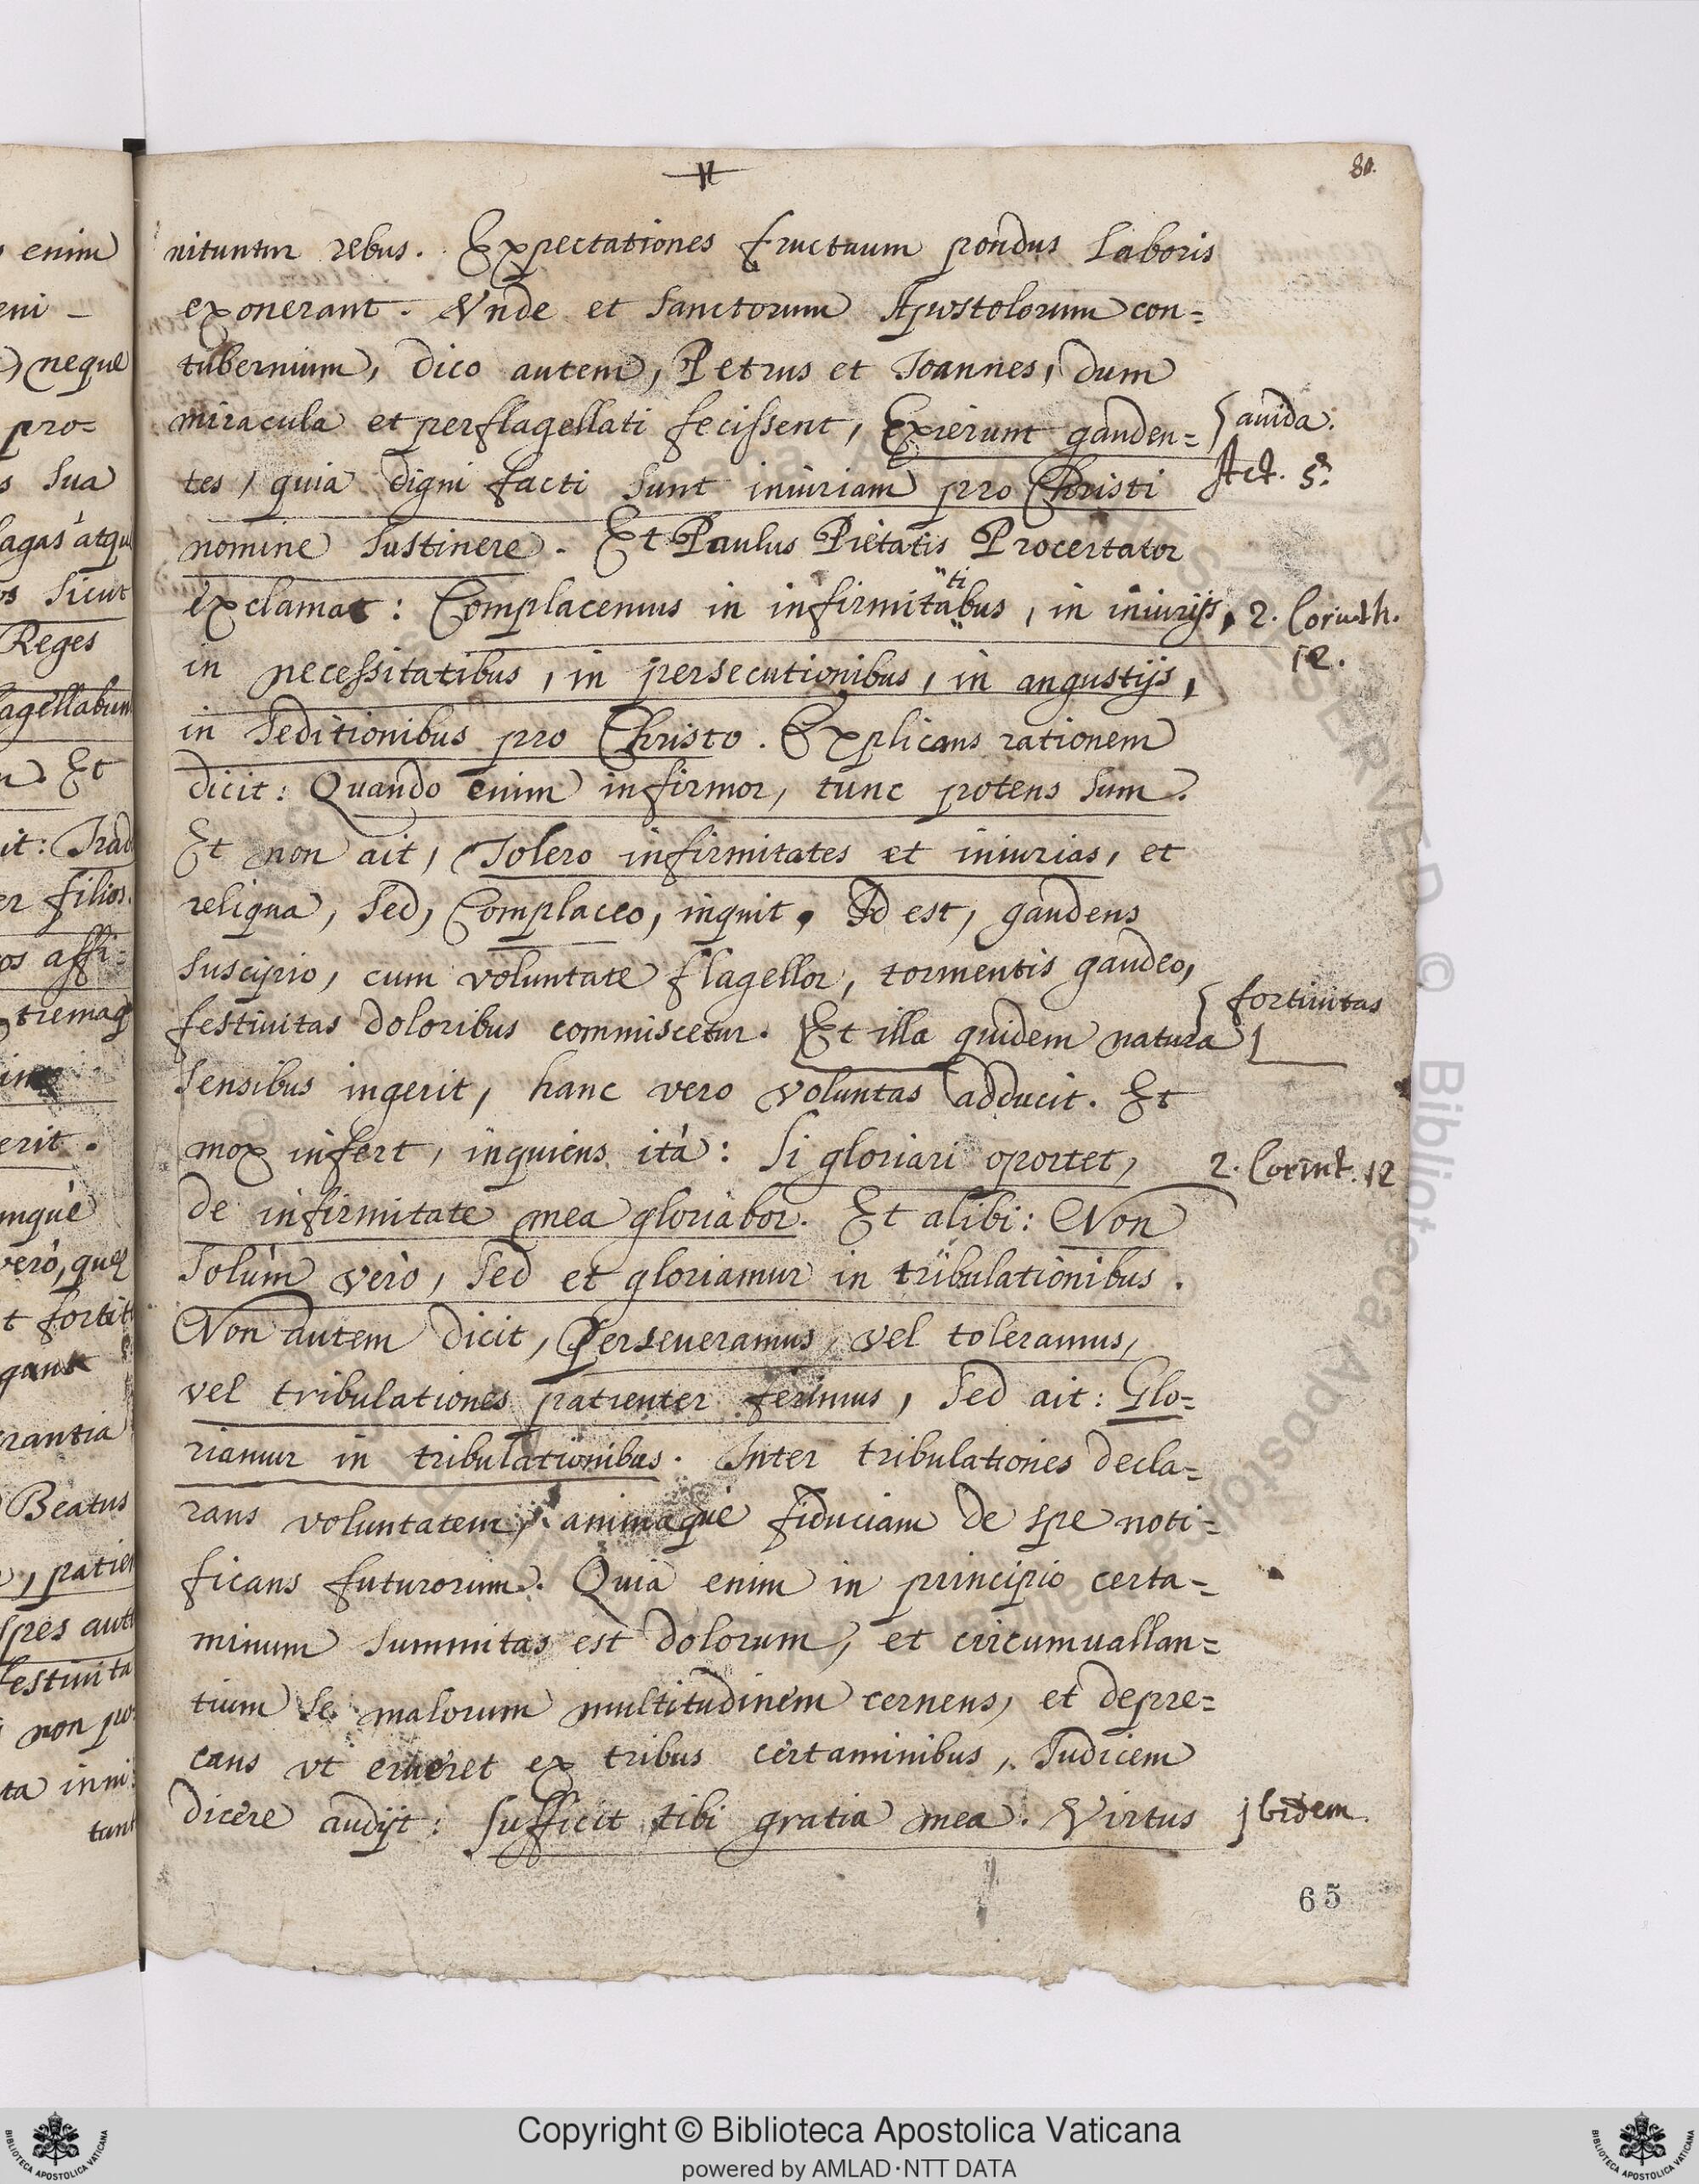 80.
nituntur rebus. Expectationes fructuum pondus laboris
exonerant. Vnde et Sanctorum Apostolorum con=
tubernium, dico autem, Petrus et Joannes, dum
miracula et perflagellati fecissent, Exierunt gauden=
auida.
tes, quia digni facti sunt iniuriam pro Christi
Act. 5.
nomine sustinere. Et Paulus Pietatis Procertator
exclamat: Complacemus in infirmitabus, in iniurijs,
ti
2. Corinth.
12.
in necessitatibus, in persecutionibus, in angustijs,
in seditionibus pro Christo. Explicans rationem
dicit: Quando enim infirmor, tunc potens sum.
Et non ait, Tolero infirmitates et iniurias, et
reliqua, sed, Complaceo, inquit. Id est, gaudens
suscipio, cum voluntate flagellor, tormentis gaudeo,
festiuitas doloribus commiscetur. Et illa quidem natura
fortiuitas
sensibus ingerit, hanc vero voluntas adducit. Et
mox infert, inquiens ità: Si gloriari oportet,
2. Corint. 12
de infirmitate mea gloriabor. Et alibi: Non
solùm verò, sed et gloriamur in tribulationibus.
Non autem dicit, Perseueramus, vel toleramus,
vel tribulationes patienter ferimus, sed ait: Glo=
riamur in tribulationibus. Inter tribulationes decla=
rans voluntatem, animaque fiduciam de spe noti=
ficans futurorum. Quia enim in principio certa=
minum summitas est dolorum, et circumuallan=
tium se malorum multitudinem cernens, et depre=
cans vt erueret ex tribus certaminibus, Iudicem
dicere audijt: Sufficit tibi gratia mea. Virtus
jbidem.
65
enim
eni -
neque
pro=
sua
lagas atqu
os sicut
Reges
lagellabun
Et
it: Trad
er filios.
os affi=
tremaq
erit.
mquè
verò, que
t fortit
gant
rantia
Beatus
, patien
spes aut
estiuita
non po
ta inni
tant
Copyright © Biblioteca Apostolica Vaticana
powered by AMLAD·NTT DATA
BIBLIOTECA APOSTOLICA VATICANA
BIBLIOTECA APOSTOLICA VATICANA